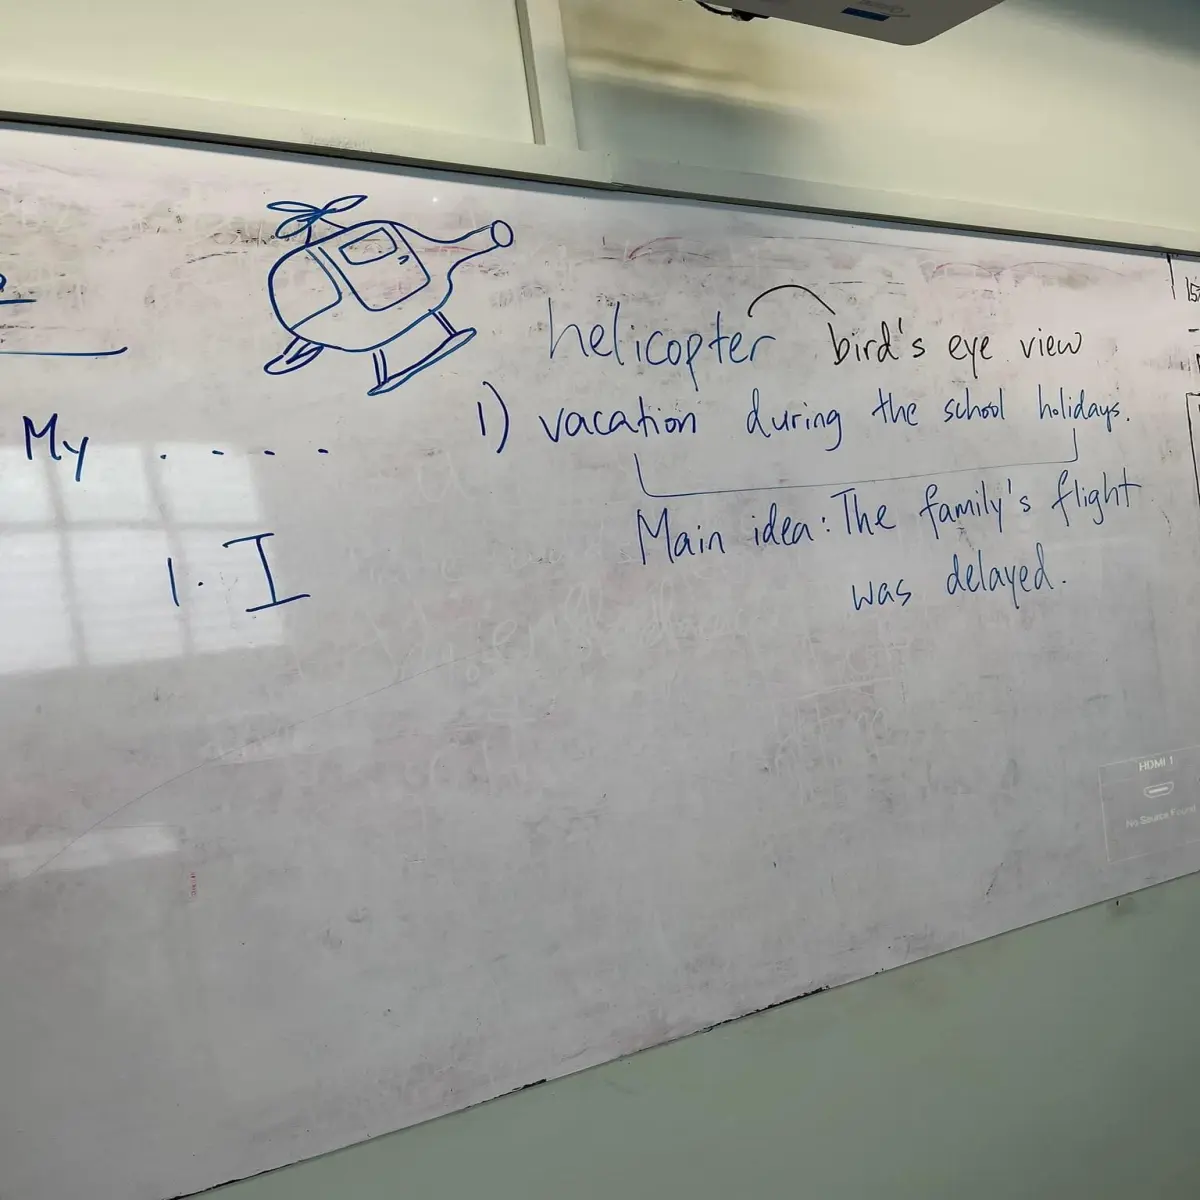 helicopter bird's eye view
1) vacation during the school holidays.
My . . . .
Main idea: The family's flight
was delayed.
1. I
HDMI 1
No Source Found